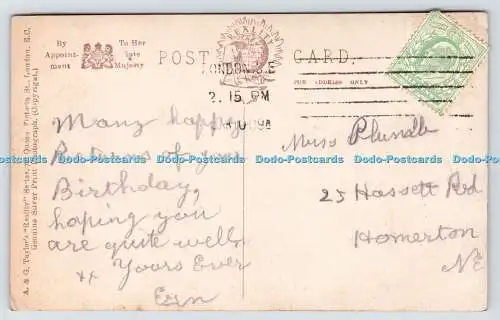 By
Appoint-
ment
To Her
late
Majesty
POST CARD.
REALITY
FOR ADDRESS ONLY
LONDON. S.E
2. 15 PM
A. & G. Taylor's "Reality" Series, Queen Victoria St., London, E.C.
Genuine Silver Print Photograph. (Copyright.)
Many happy
Returns of your
Birthday,
hoping you
are quite well
xx Yours Ever
Miss
25 Hassett Rd
Homerton
NE
Dodo-Postcards Dodo-Postcards Dodo-Postcards Dodo-Postcards Dodo-Postcards Dodo-Postcards